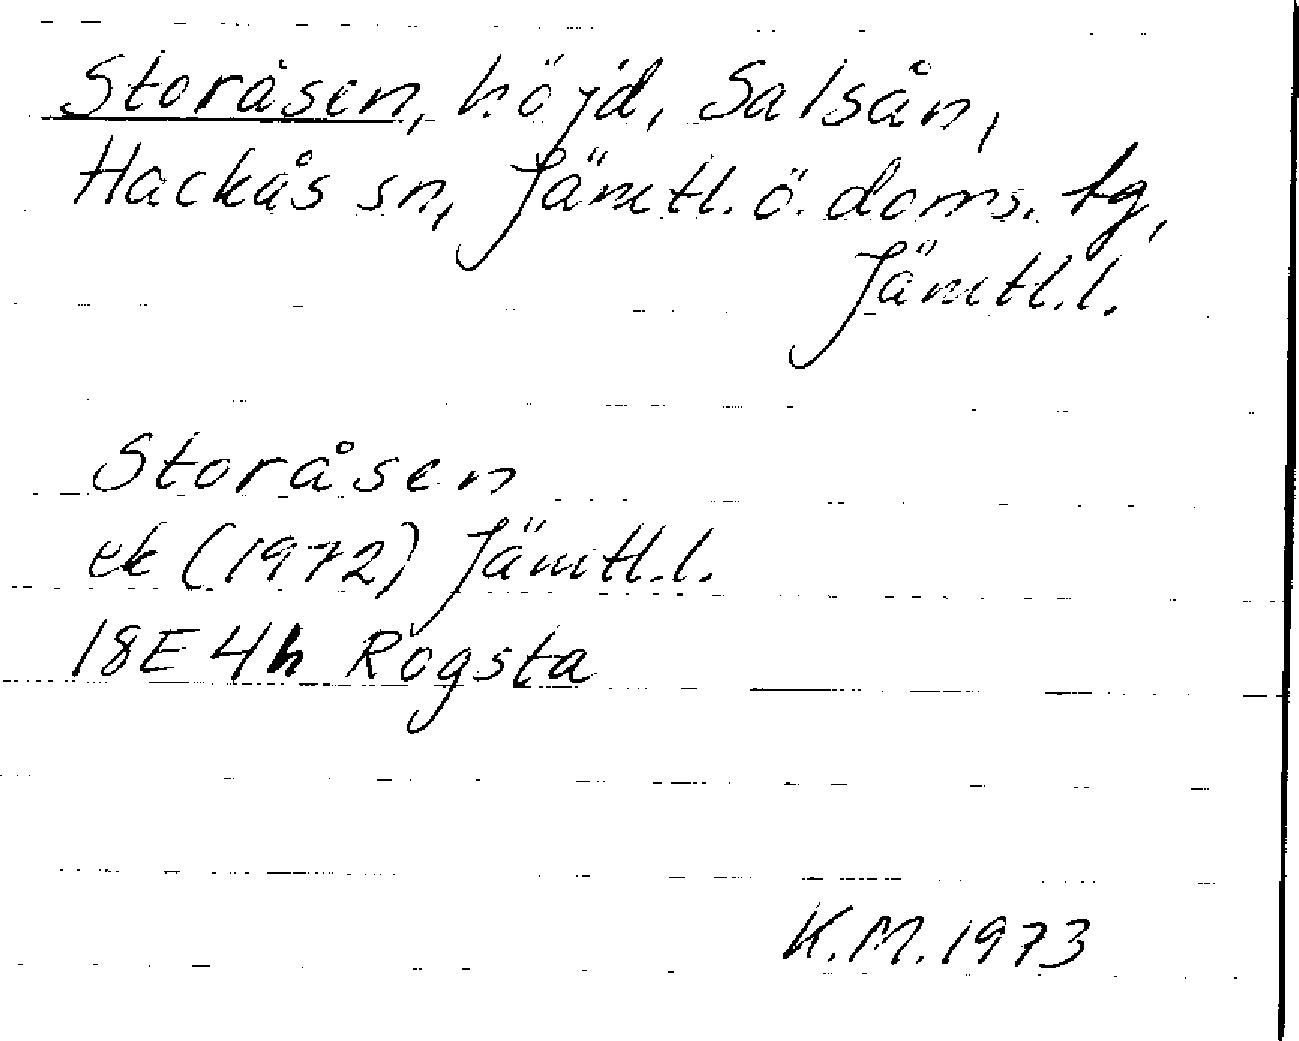 Storåsen, höjd, Salsån,
Hackås sn, Jämtl. ö. doms. tg,
Jämtl.l.
Storåsen
ek (1972) Jämtl.l.
18E 4h Rogsta
K.M. 1973